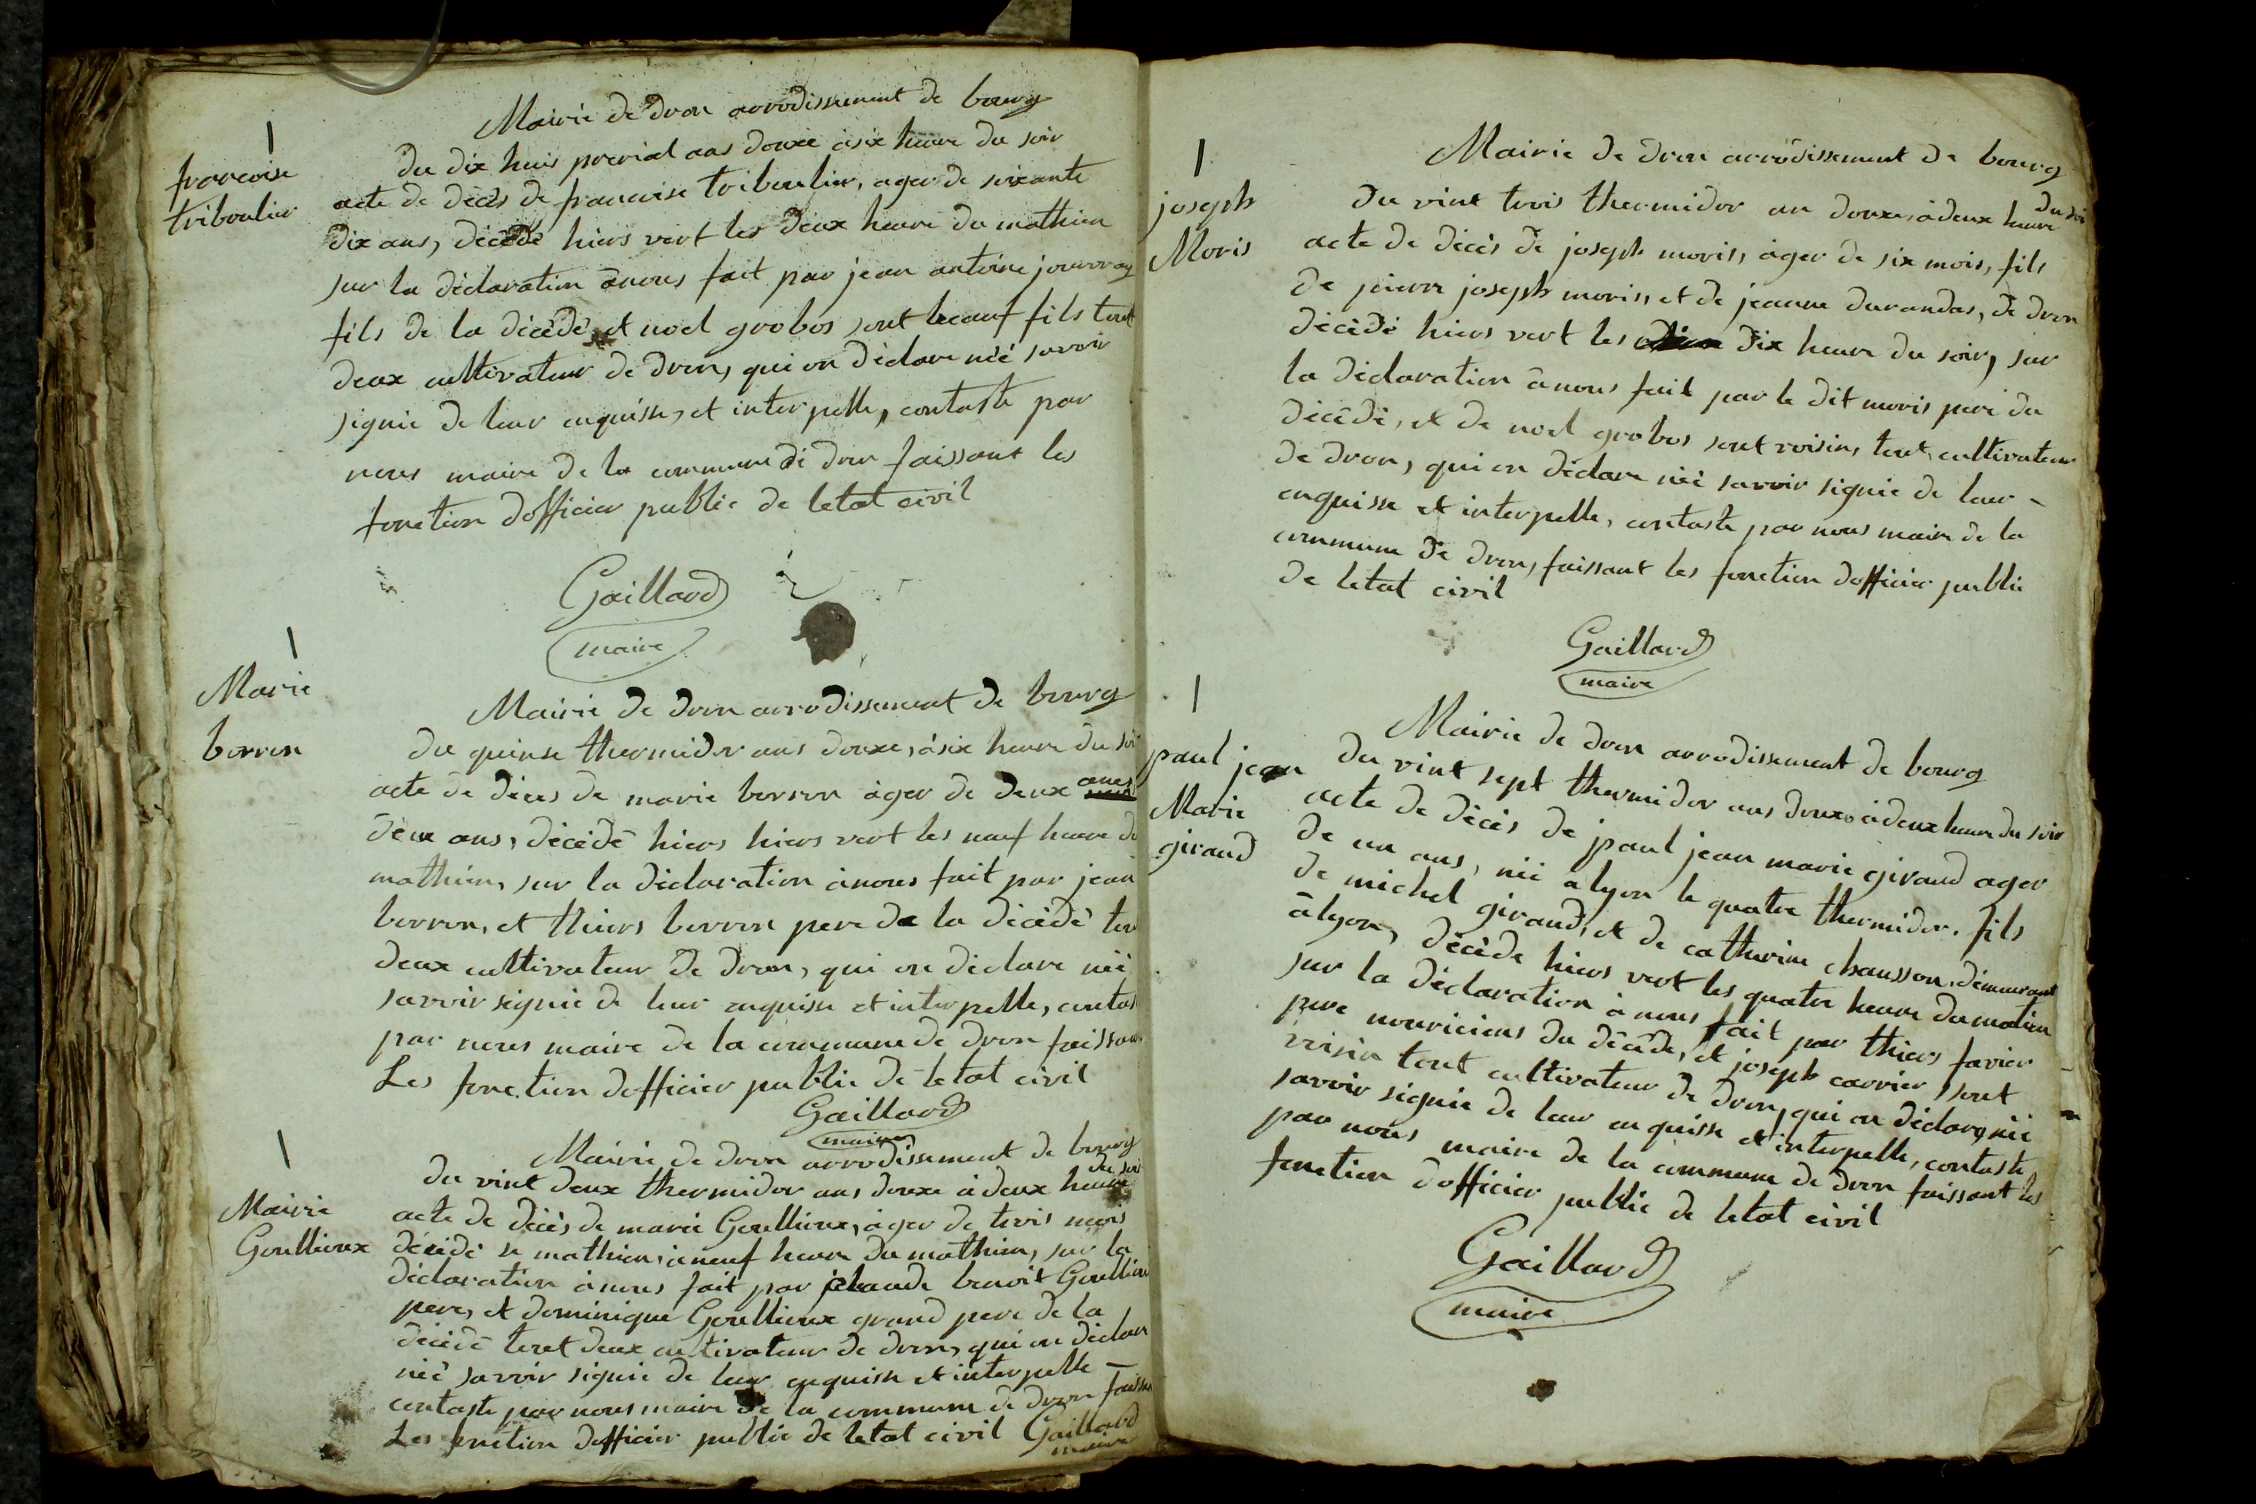 Mairie de dron arrodissement de bourg
francoise
triboulier
du dix huis prerial ans douxe à six heure du soir
acte de décès de francoise triboulier, ager de soixante
dix ans, décédé hiers vert les deux heure du mathien
sur la déclaration ànous fait par jean antoine jouvray
fils de la décédé et noel grobos sont beauf fils tout
deux cultivateur de dron, qui on déclare néé savoir
signie de leur enquisse, et interpelle, contaste par
nous maire de la commune de dron faissant les
fonction dofficier public de letat civil
Gaillard
maire
Marie
borron
Mairie de dron arrodissement de bourg
du quinse thermidor ans douxe, à six heure du soi
acte de décès de marie borron àger de deux ans
deux ans, décédé hiers hiers vert les neuf heure du
mathien, sur la déclaration ànous fait par jean
borron, et thiers borron pere de la décédé tou
deux cultivateur de dron, qui on declare néé
savoir signie de leur enquisse et interpelle, contas
par nous maire de la commune de dron faissan
Les fonction dofficier public de letat civil
Gaillard
maire
Mairie
Goullioux
Mairie de dron arrodissement de bourg
du vint deux thermidor ans douxe à deux heure du soir
acte de décès de marie Goullioux, àger de trois mois
décédé se mathien, à neuf heure du mathien, sur la
déclaration ànous fait par jclaude benoit Goulliou
pere, et dominique Goullioux grand pere de la
décédé tout deux cultivateur de dron, qui on déclare
néé savoir signie de leur enquisse et interpelle –
contaste par nous maire de la commune de dron faissan
Les fonction dofficier public de letat civil Gaillard
maire
joseph
Moris
Mairie de dron arrodissement de bourg
du vint trois thermidor an douxe, à deux heure du soi
acte de décès de joseph moris, àger de six mois, fils
de pierre joseph moris, et de jeanne durandas, de dron
décédé hiers vert les dix heure du soir, sur
la déclaration ànous fait par le dit moris pere du
décédé, et de noel grobos sont voisin, tout cultivateur
de dron, qui on déclare néé savoir signie de leur –
enquisse et interpelle, contaste par nous maire de la
commune de dron, faissant les fonction dofficier public
de letat civil
Gaillard
maire
paul jean
Marie
giraud
Mairie de dron arrodissement de bourg
du vint sept thermidor ans douxe à deux heure du soir
acte de décès de paul jean marie giraud ager
de un ans, néé a lyon le quatre thermidor. fils
de michel giraud, et de catherine chausson, démeurant
à lyon, décéde hiers vert les quatre heure du matien
sur la déclaration à nous fait par thiers favier
pere nouriciens du décéde, et joseph carrier sont
voisin tout cultivateur de dron, qui on déclare néé
savoir signie de leur enquisse et interpelle, contaste
par nous maire de la commune de dron faissant les
fonction dofficier public de letat civil
Gaillard
maire